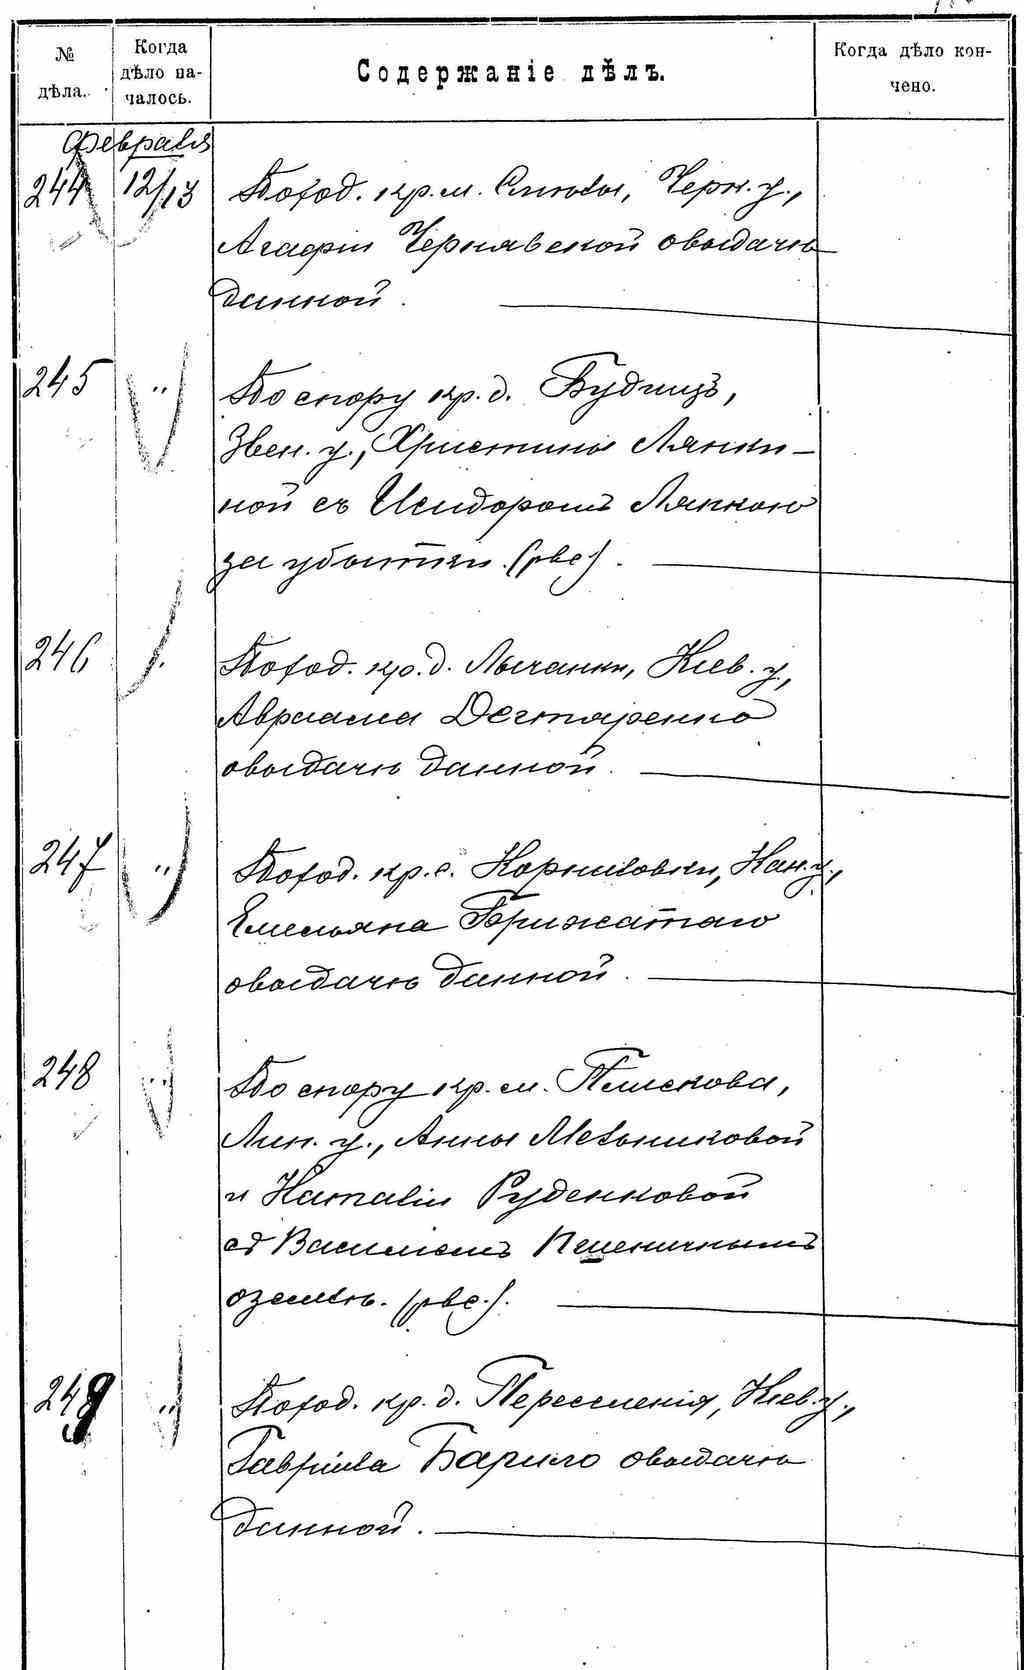 № дѣла.
Когда дѣло на-
чалось.
Содержаніе дѣлъ.
Когда дѣло кон-
чено.
Февраля
244 12/13 По ход. кр. м. Смѣлы, Черк. у.,
Агафіи Чернявской о выдачѣ
данной.
245 " По спору кр. д. Будищъ,
Звен. у., Христины Ляпки-
ной съ Исидоромъ Ляпкою
за убытки. (рвс).
246 По ход. кр. д. Лычанки, Кіев. у.,
Авраама Дегтяренко
о выдачѣ данной.
247 " По ход. кр. с. Корниловки, Кан. у.,
Емельяна Брижатаго
о выдачѣ данной.
248 " По спору кр. м. Плискова,
Лип. у., Анны Мельниковой
и Наталіи Руденковой
съ Василіемъ Пшеничнымъ
о землѣ. (рвс.).
249 " По ход. кр. д. Переселенія, Кіев. у.,
Гавріила Барило о выдачѣ
данной.